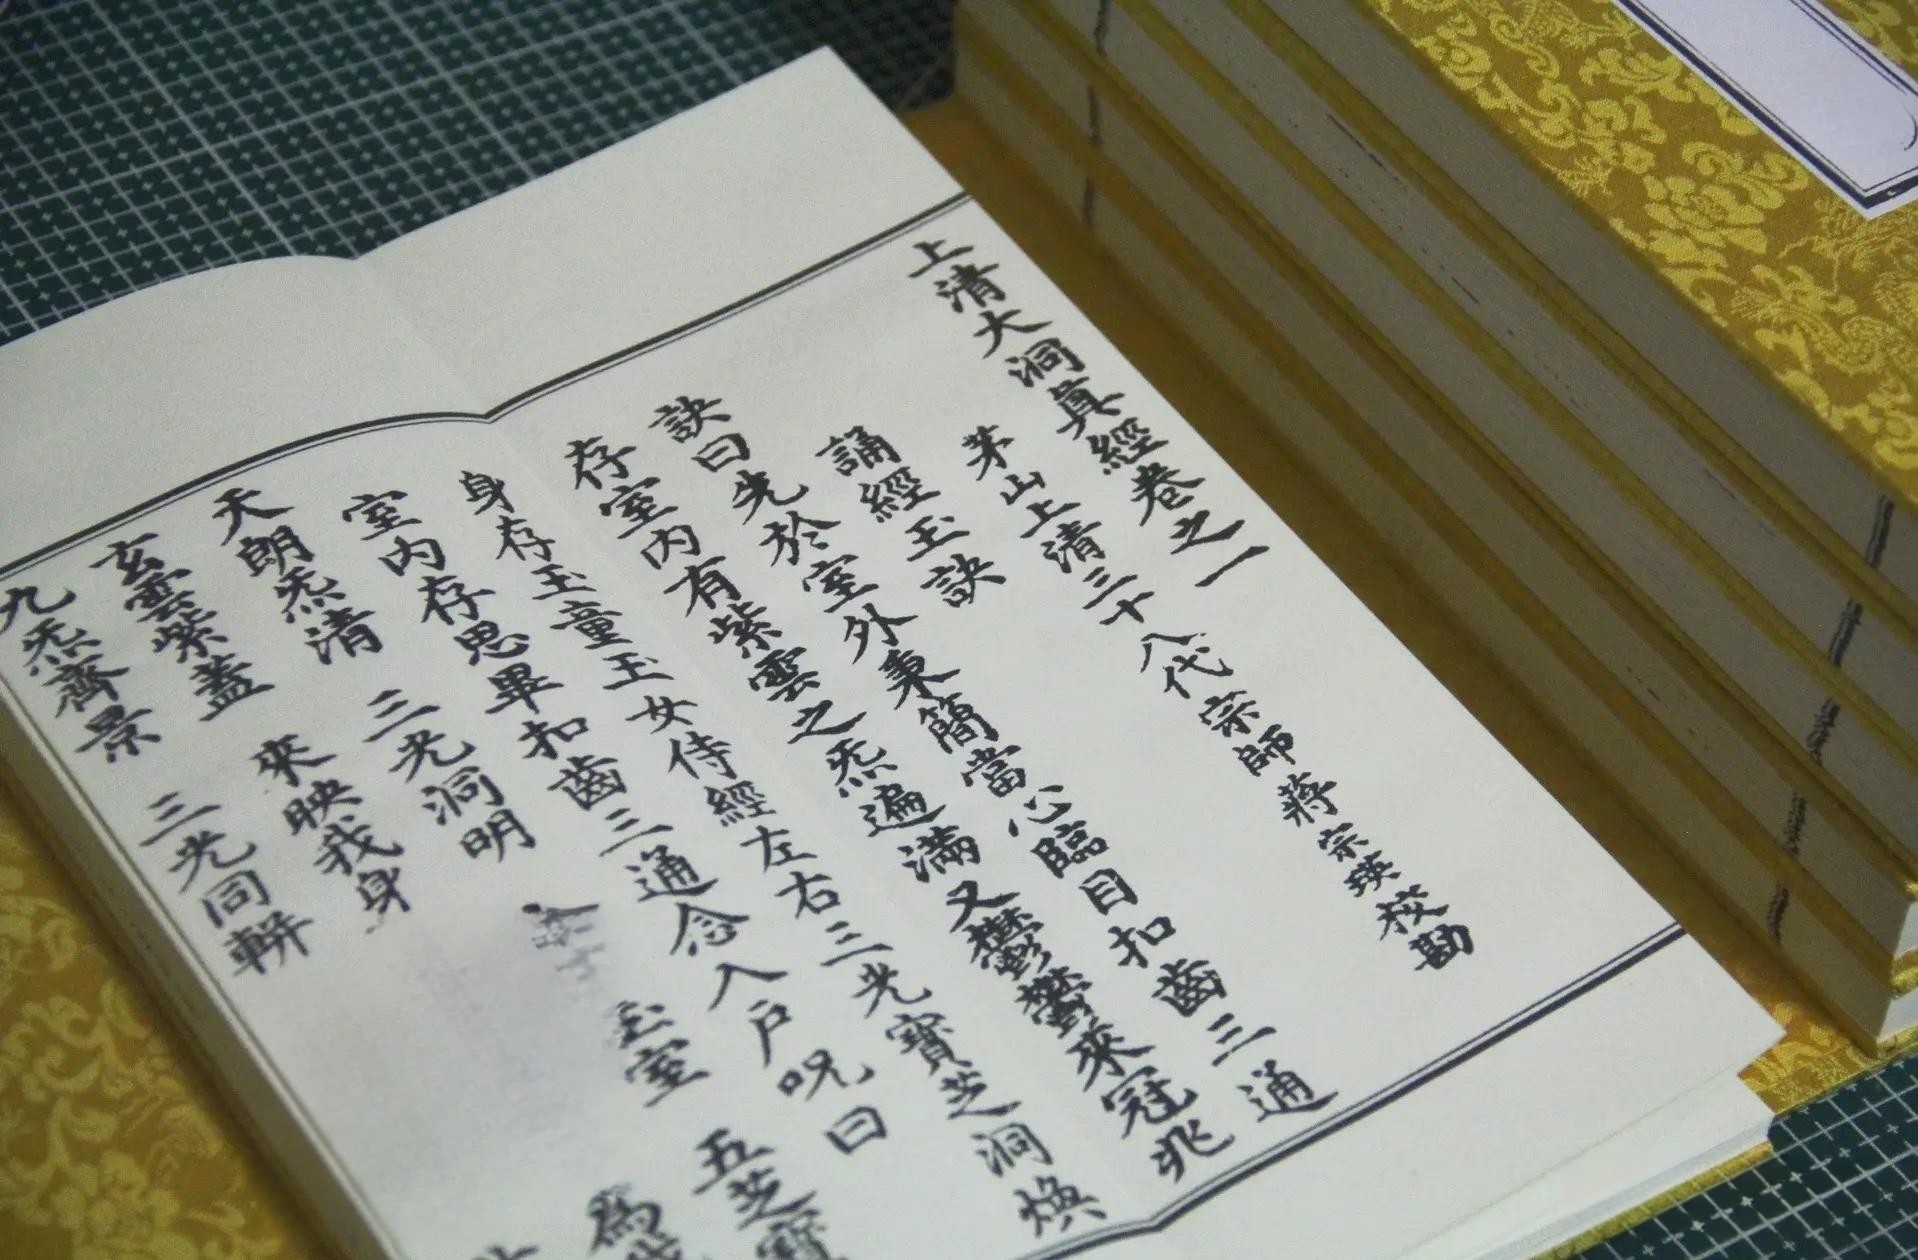 上清大洞眞經卷之一
茅山上清三十八代宗師蔣宗瑛校勘
誦經玉訣
訣曰先於室外秉簡當心臨目扣齒三通
存室內有紫雲之炁遍滿又鬱鬱來冠兆
身存玉童玉女侍經左右三光寶芝洞煥
室內存思畢扣齒三通念入戶呪曰
天朗炁清 三光洞明 玉室 五芝寶
玄雲紫蓋 來映我身 為
九炁齊景 三光同軿